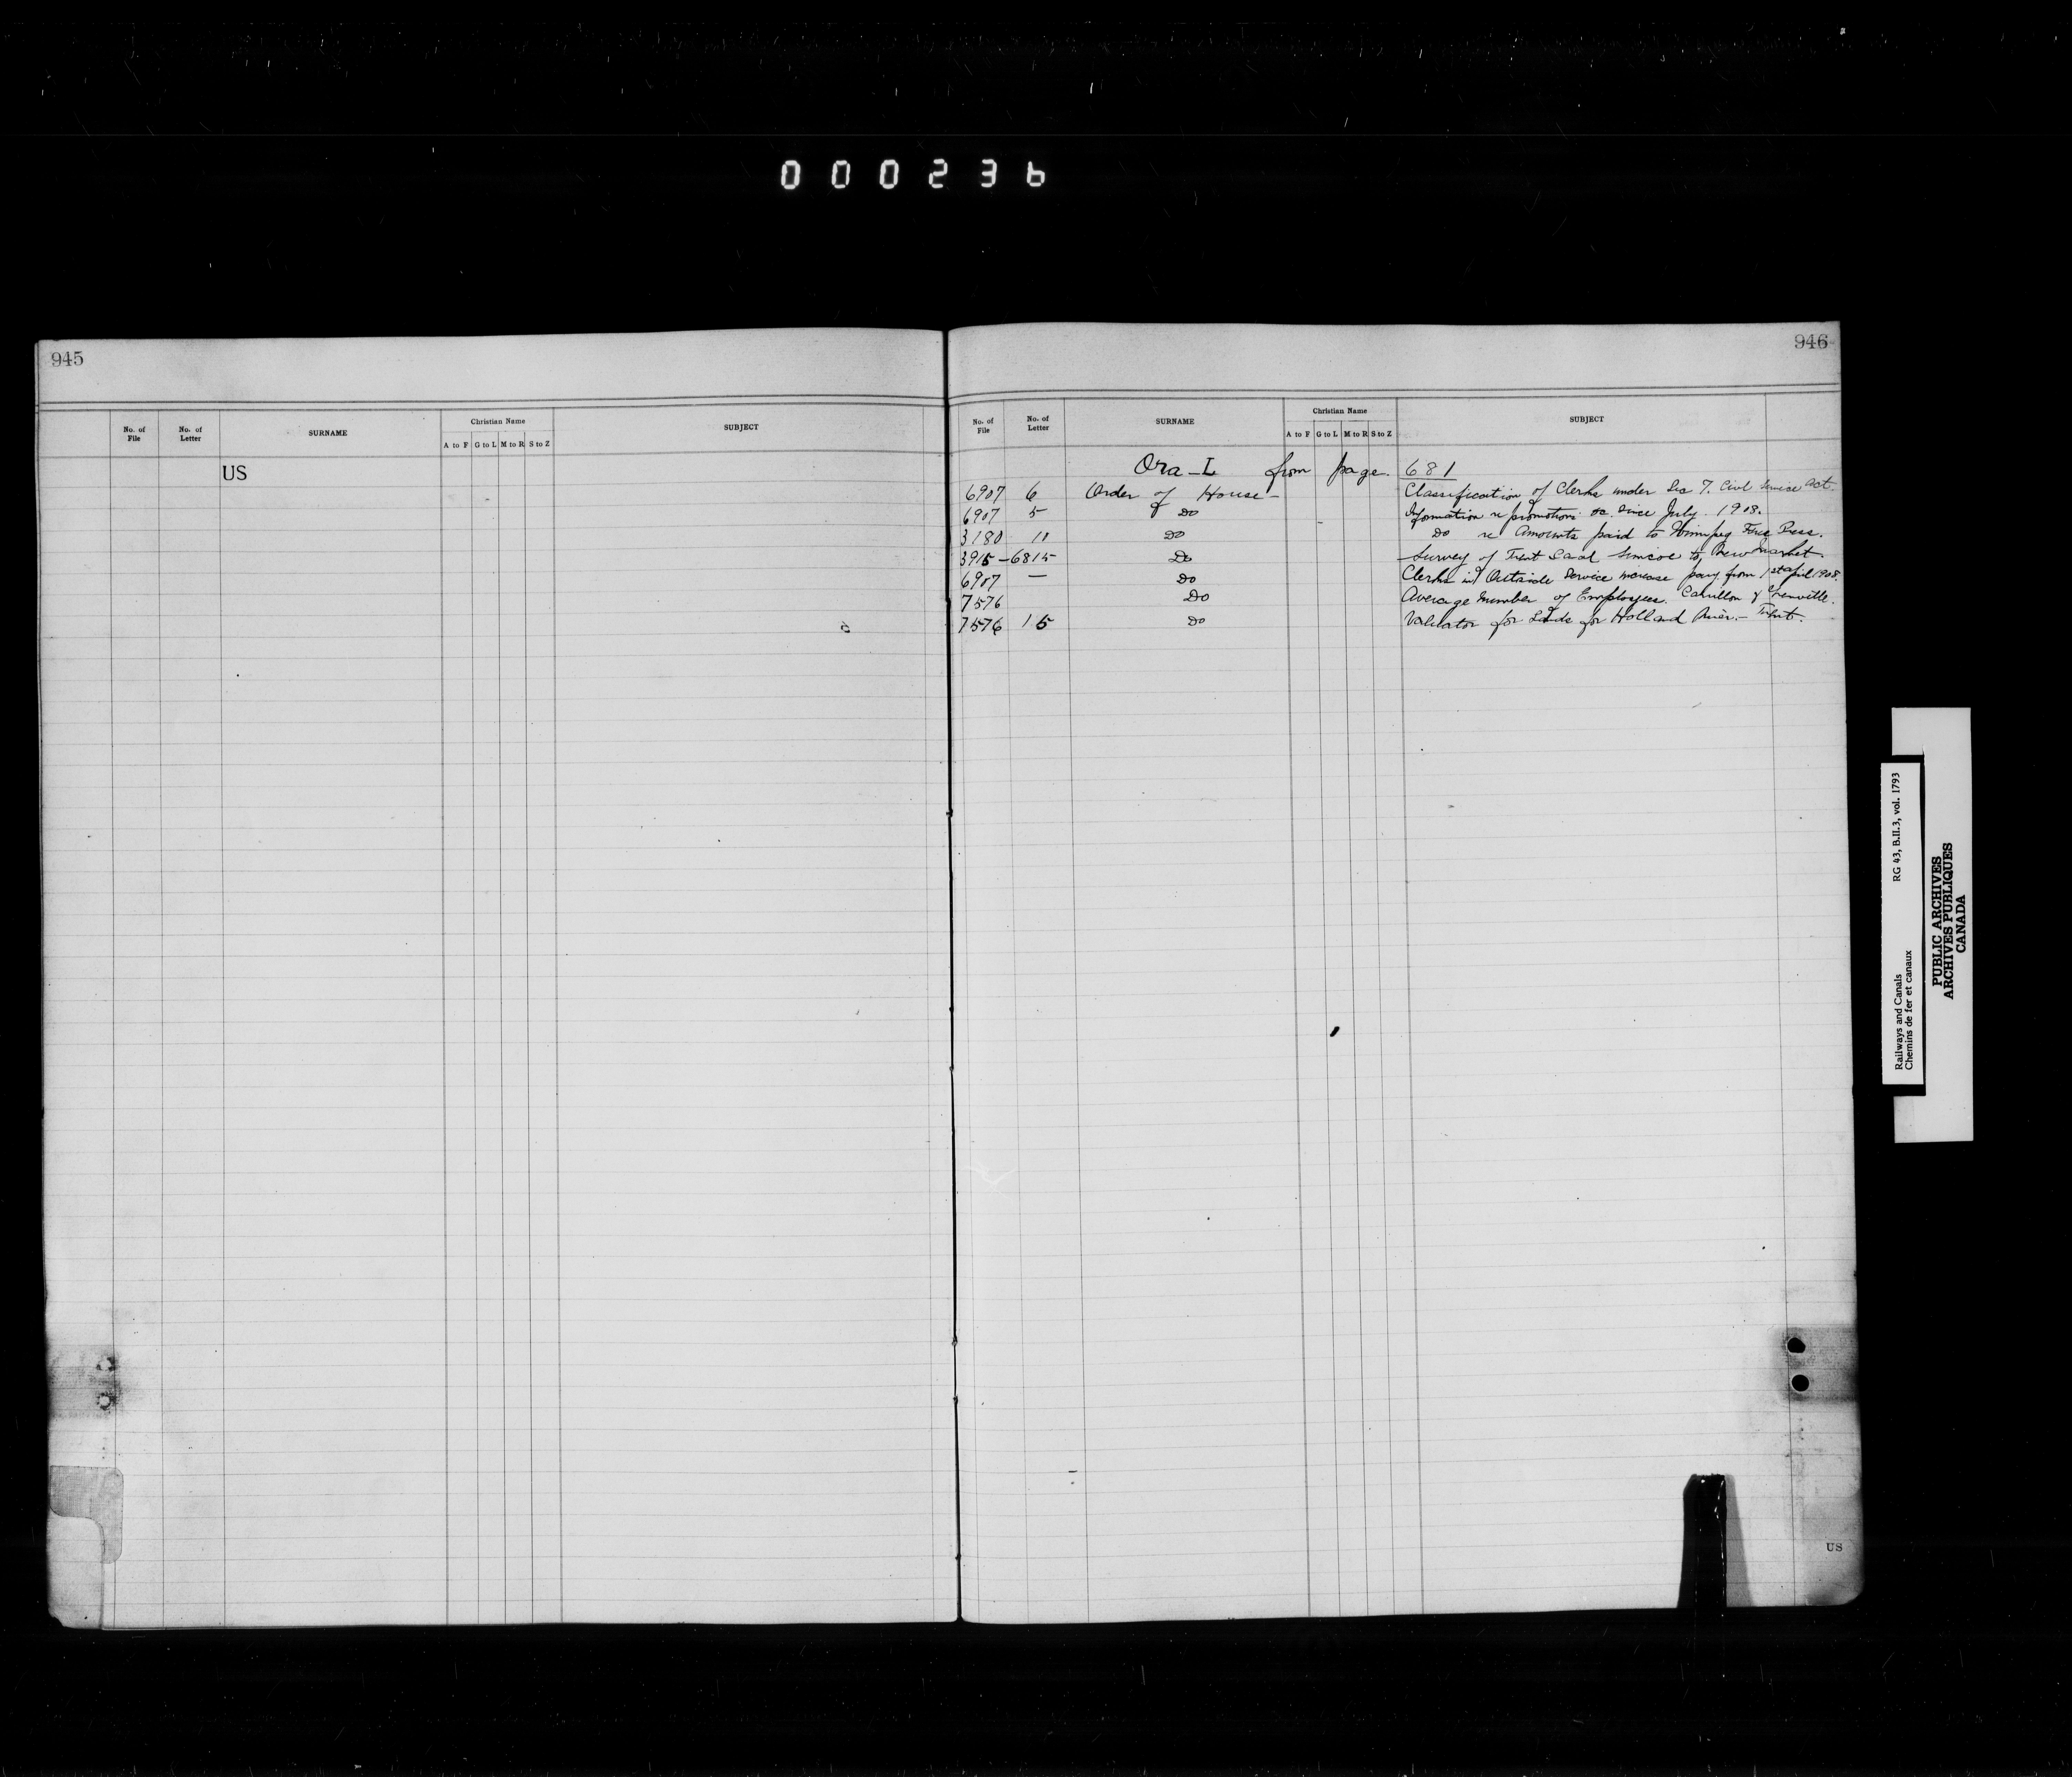 000236
945
No. of File No. of Letter SURNAME Christian Name SUBJECT
A to F G to L M to R S to Z
US
946
No. of File No. of Letter SURNAME Christian Name SUBJECT
A to F G to L M to R S to Z
Ora-L from page 681
6907 6 Order of House - Classification of Clerks under Sec 7. Civil Service Act.
6907 5 Do Information re promotions &c. since July 1908.
3180 11 Do Do re Amounts paid to Winnipeg Free Press.
3915-6815 Do Survey of Trent Canal Simcoe to Newmarket.
6907 — Do Clerks in Outside Service increase pay from 1st April 1908.
7576 Do Average number of Employees. Carillon & Grenville.
7576 15 Do Valuator for Lands for Holland River - Trent.
US
Railways and Canals RG 43, B.II.3, vol. 1793
Chemins de fer et canaux
PUBLIC ARCHIVES
ARCHIVES PUBLIQUES
CANADA